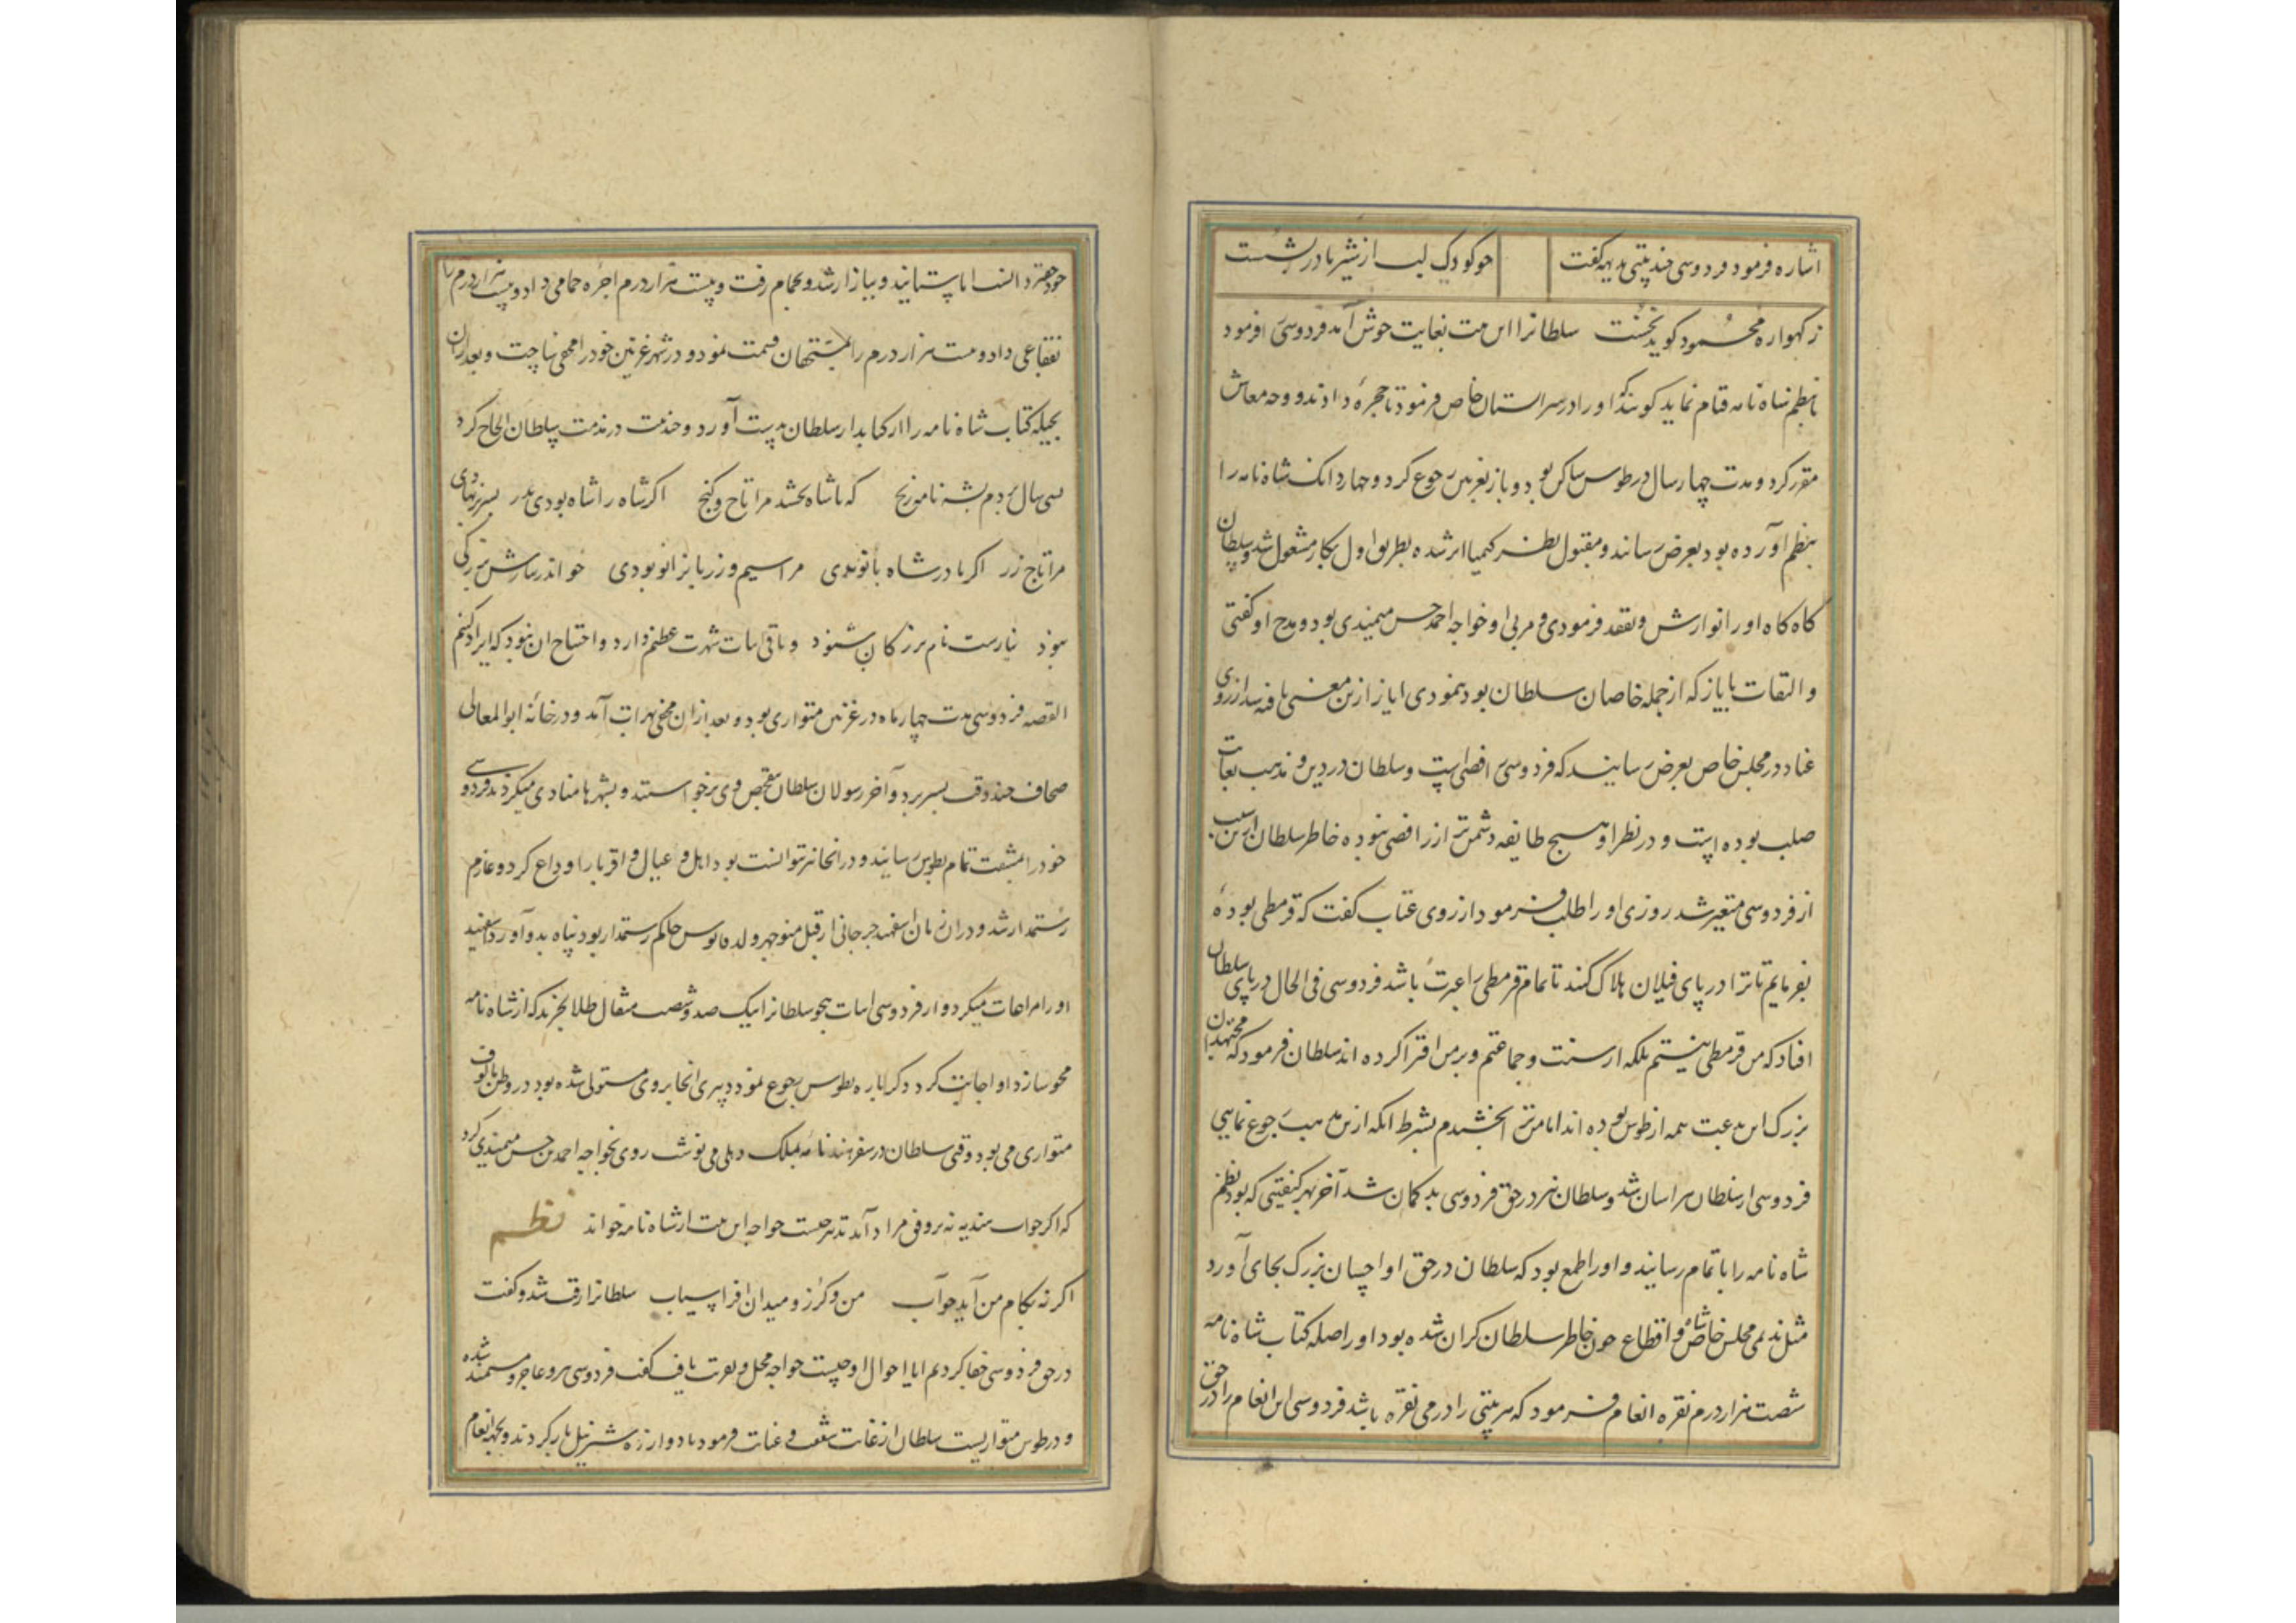 اشاره فرمود فردوسی چند بیتی بدیهه گفت چو کودک لب از شیر مادر بشست
ز کهواره محمود کوید نخست سلطانرا این بیت بغایت خوش آمد فردوسی را فرمود
تا بنظم شاه نامه قیام نماید کویند او را در سراستان خاص فرمود تا حجرهٔ دادند و وجه معاش
مقرر کرد و مدت چهار سال در طوس ساکن بود و باز بغزنین رجوع کرد و چهار دانک شاه نامه را
بنظم آورده بود بعرض رسانید و مقبول نظر کیمیا اثر شده بطریق اول بکار مشغول شد و سلطان
کاه کاه او را نوازش و تفقد فرمودی و مربی او خواجه احمد حسن میمندی بود و مدح او کفتی
و التفات بایاز که از جمله خاصان سلطان بود ننمودی ایاز ازین معنی تافته شد از روی
عناد در مجلس خاص بعرض رسانید که فردوسی رافضی است و سلطان در دین و مذهب بغایت
صلب بوده است و در نظر او هیچ طایفه دشمن‌تر از رافضی نبوده خاطر سلطان ازین سبب
از فردوسی متغیر شد روزی او را طلب فرمود از روی عتاب کفت که تو قرمطی بودهٔ
بفرمایم تا ترا در پای فیلان هلاک کنند تا تمام قرمطی را عبرت باشد فردوسی فی الحال در پای سلطان
افتاد که من قرمطی نیستم بلکه از سنت و جماعتم و بر من افترا کرده اند سلطان فرمود که مجتهدان
بزرک این بدعت همه از طوس بوده اند اما من ترا بخشیدم بشرط آنکه ازین مذهب رجوع نمایی
فردوسی از سلطان هراسان شد و سلطان نیز در حق فردوسی بد کمان شد آخر بهر کیفیتی که بود نظم
شاه نامه را باتمام رسانید و او را طمع بود که سلطان در حق او احسان بزرک بجای آورد
مثل ندیمی مجلس خاص و اقطاع چون خاطر سلطان کران شده بود او را صله کتاب شاه نامه
شصت هزار درم نقره انعام فرمود که هر بیتی را درمی نقره باشد فردوسی این انعام را در حق
خود حقیر دانست اما بستانید و ببازار شد و بحمام رفت و بیست هزار درم اجره حمامی داد و بیست هزار درم را
فقاعی داد و بیست هزار درم را بمستحقان قسمت نمود و در شهر غزنین خود را مخفی ساخت و بعد از آن
بحیله کتاب شاه نامه را از کتابدار سلطان بدست آورد و چند بیت در مذمت سلطان الحاق کرد
بسی سال بردم بشه نامه رنج که تا شاه بخشد مرا تاج و کنج اکر شاه را شاه بودی پدر بسر برنهادی
مرا تاج زر اکر مادر شاه بانو بدی مرا سیم و زر تا بزانو بودی چو اندر تبارش بزرکی
نبود نیارست نام بزرکان شنود و باقی ابیات شهرت عظیم دارد و احتیاج آن نبود که ایراد کنیم
القصه فردوسی مدت چهار ماه در غزنین متواری بود و بعد از آن مخفی بهرات آمد و در خانهٔ ابوالمعالی
صحاف چند وقت بسر برد و آخر رسولان سلطان بتفحص وی برخواستند و بشهرها منادی میکردند فردوسی
خود را بمشقت تمام بطوس رسانید و در آنجا نیز نتوانست بود اهل و عیال و اقربا را وداع کرد و عازم
رستمدار شد و در آن زمان اسفهبد جرجانی از قبل منوچهر ولد قابوس حاکم رستمدار بود پناه بدو آورد اسفهبد
او را مراعات میکرد و از فردوسی ابیات هجو سلطانرا بیک صد و شصت مثقال طلا بخرید که از شاه نامه
محو سازد او اجابت کرد دکر باره بطوس رجوع نمود و پیری آنجا بر وی مستولی شده بود در وطن مالوف
متواری می بود وقتی سلطان در سفر هند نامهٔ بملک دهلی می نوشت روی بخواجه احمد بن حسن میمندی کرد
که اکر جواب هندیه نه بر وفق مراد آید تدبیر چیست خواجه این بیت از شاه نامه خواند نظم
اکر نه بکام من آید جواب من و کرز و میدان افراسیاب سلطانرا رقت شد و کفت
در حق فردوسی جفا کردم ایا احوال او چیست خواجه محل و فرصت یافت کفت فردوسی پیر و عاجز و مستمند شده
و در طوس متواریست سلطان از غایت شفقت و عنایت فرمود تا دوازده شتر نیل بار کردند و بجهة انعام